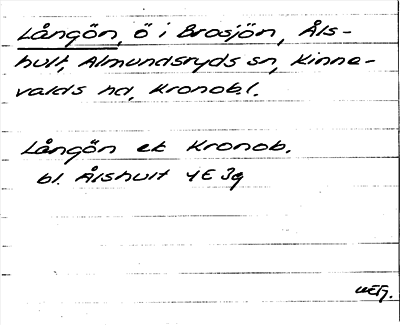 Långön, ö i Brosjön, Åls-
hult, Almundsryds sn, Kinne-
valds hd, Kronob.l.
Långön ek Kronob.
bl. Ålshult 4E 3g